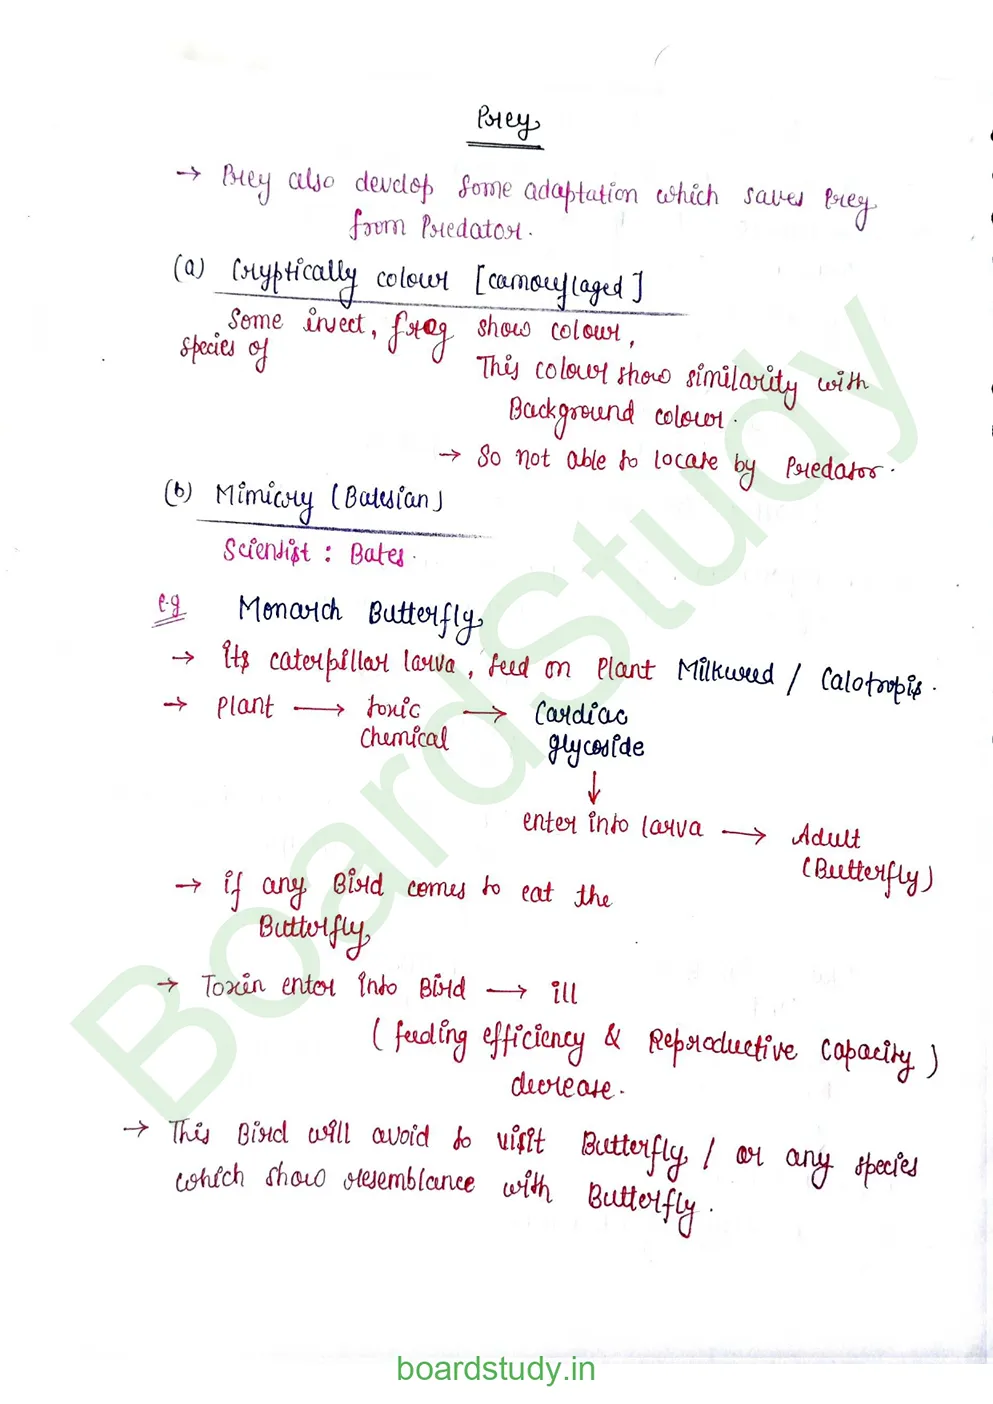 Prey
→ Prey also develop some adaptation which saves Prey
from Predator.
(a) Cryptically colour [camouflaged]
Some insect, frog show colour,
species of
This colour show similarity with
Background colour.
→ So not able to locate by Predator.
(b) Mimicry (Batesian)
Scientist : Bates.
e.g Monarch Butterfly
→ its caterpillar larva, feed on Plant Milkweed / Calotropis.
→ Plant → toxic → Cardiac
chemical glycoside
↓
enter into larva → Adult
(Butterfly)
→ if any Bird comes to eat the
Butterfly
→ Toxin enter into Bird → ill
(feeding efficiency & Reproductive capacity)
decrease.
→ This Bird will avoid to visit Butterfly / or any species
which show resemblance with Butterfly.
BoardStudy
boardstudy.in